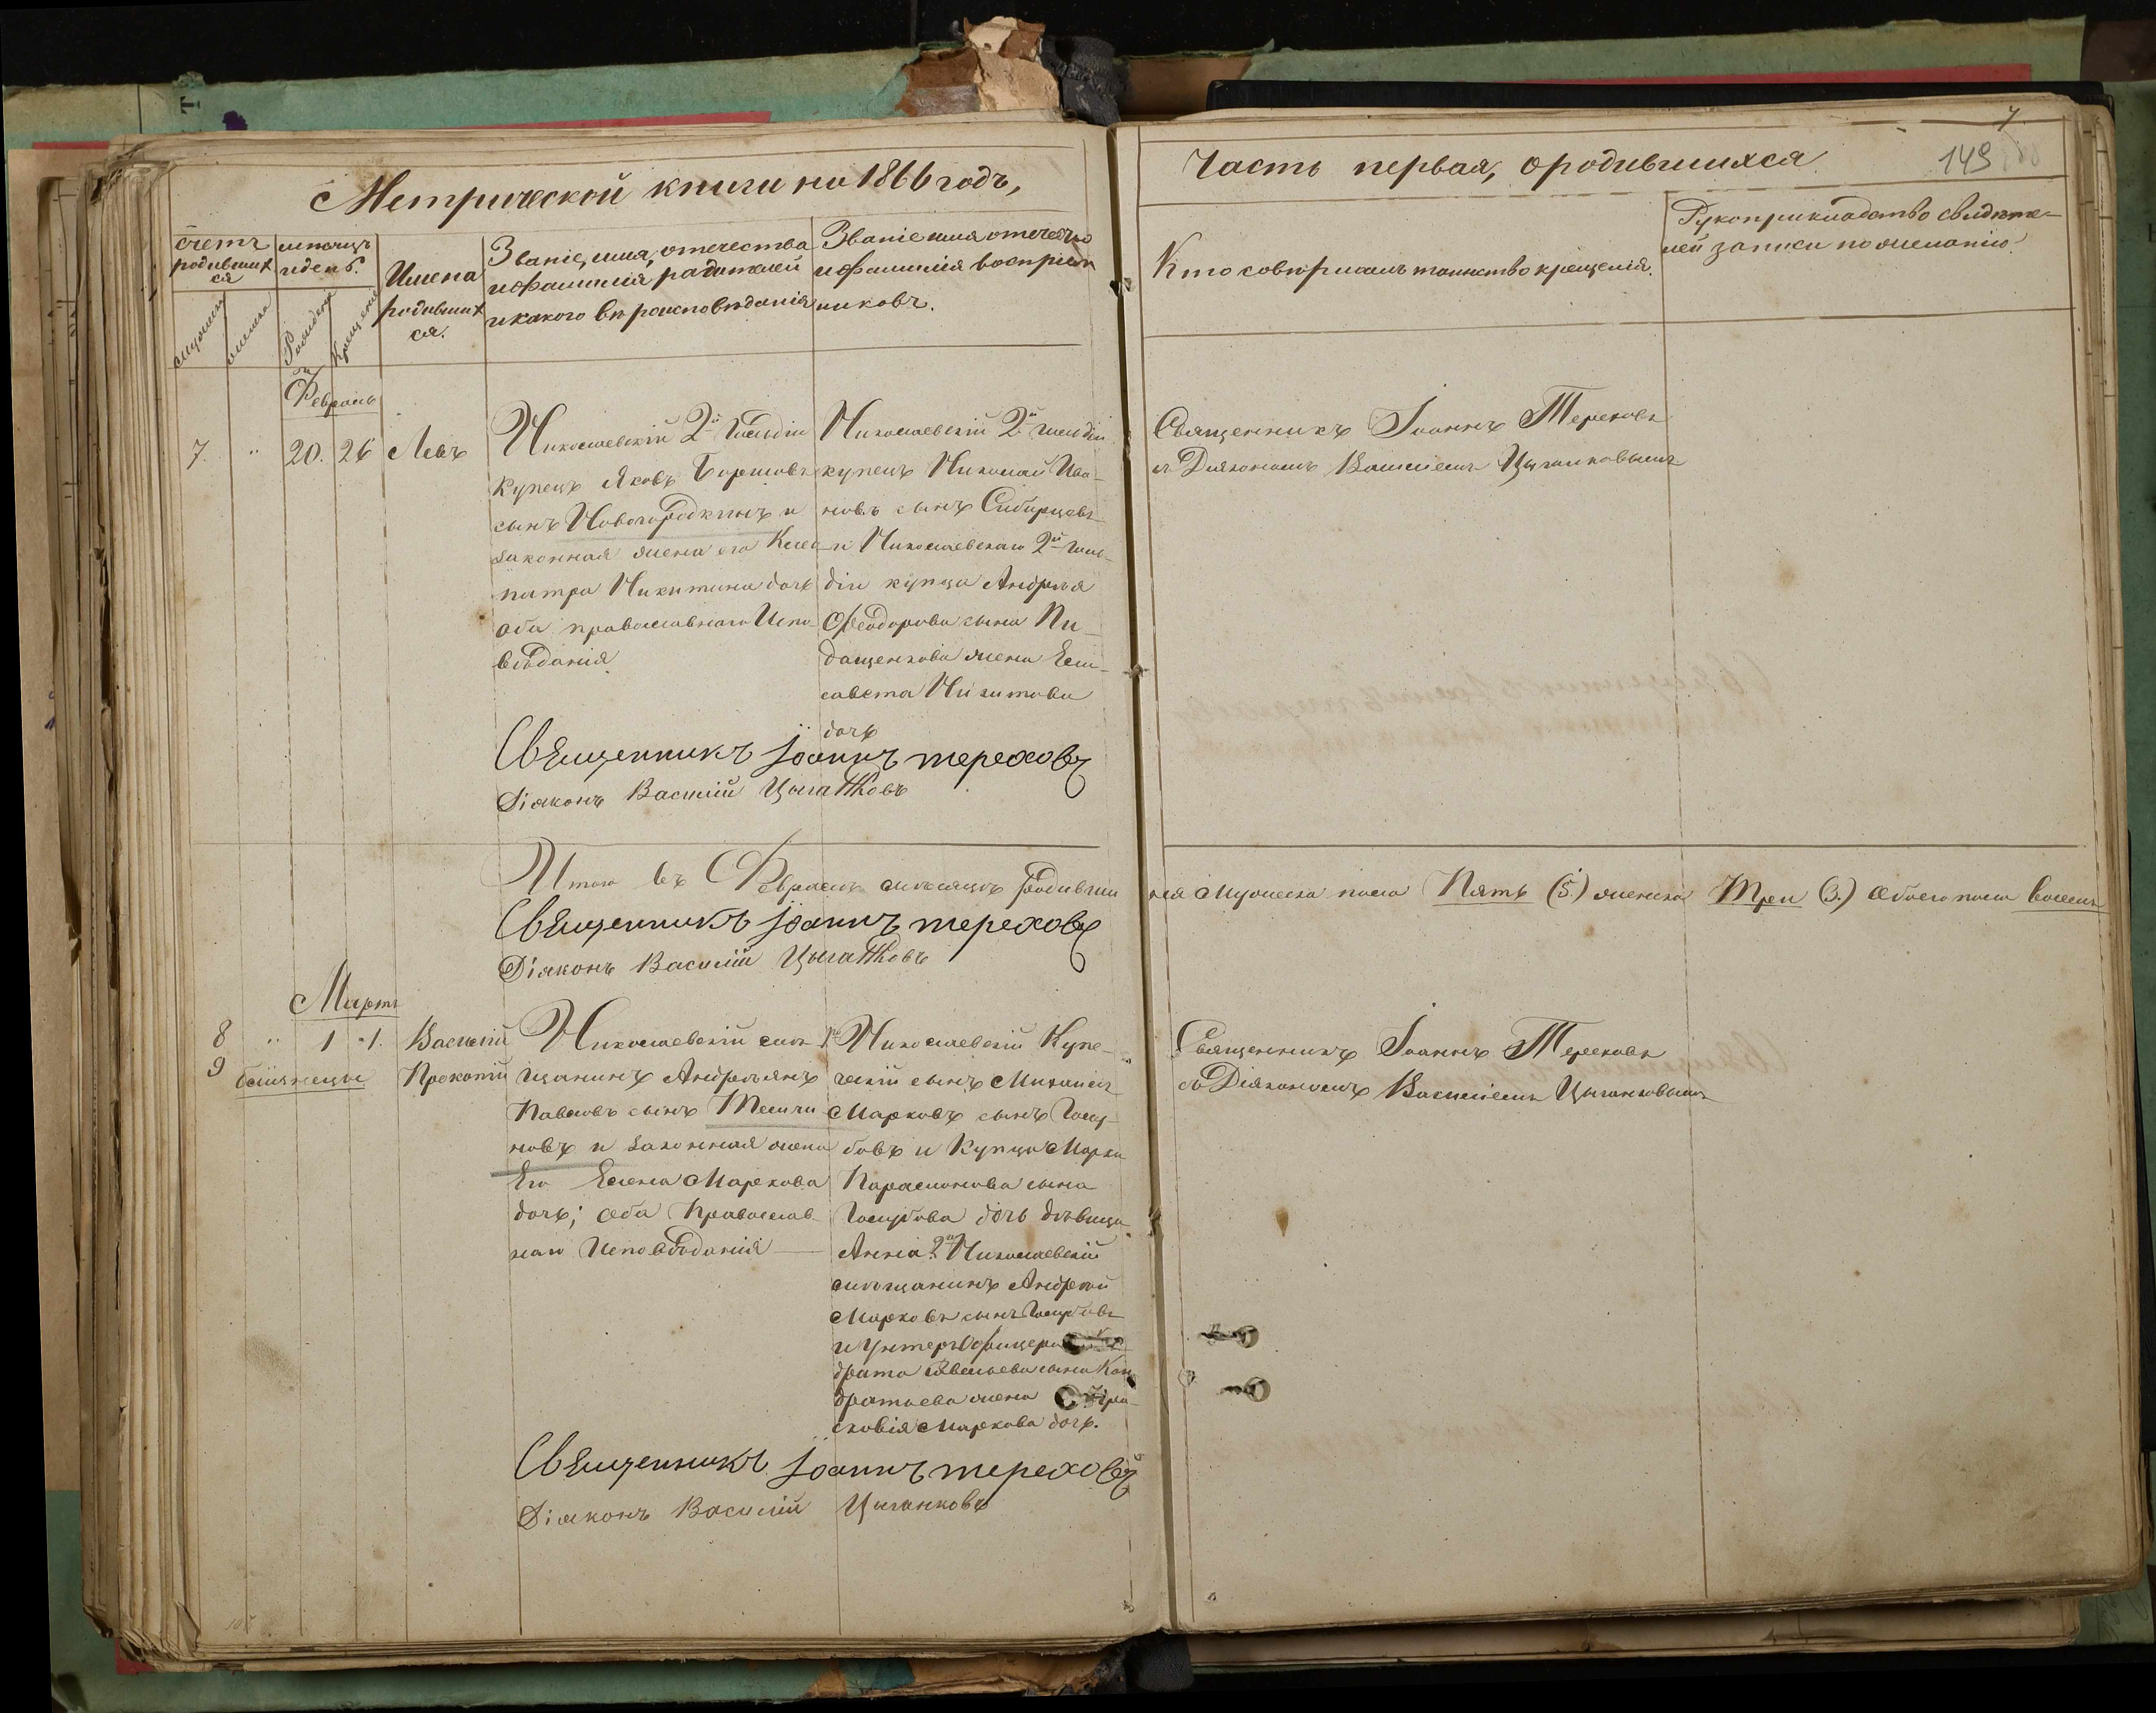 Метрической книги на 1866 годъ,
Часть первая, о родившихся
7
149
Счетъ родившихся
мѣсяцъ и день.
Имена родившихся.
Званіе, имя, отечество и фамилія родителей и какого вѣроисповѣданія
Званіе имя отечество и фамилія воспріемниковъ.
Кто совершалъ таинство крещенія.
Рукоприкладство свидѣтелей записи по желанію
Февраль
7. " 20. 26 Левъ
Николаевскій 2й Гильдіи
купецъ Яковъ
сынъ Новогородкинъ и
законная жена его Клео
патра Никитина дочь
оба православнаго Испо
вѣданія
Николаевскій 2й гильдіи
купецъ Николай Ива-
новъ сынъ Сибирцевъ
и Николаевскаго 2й гиль-
діи купца Андрея
Феодорова сына Пи-
дащенкова жена Ели-
савета Никитова
дочь
Священникъ Іоаннъ Тереховъ
съ Діякономъ Василіемъ Цыганковымъ
Священникъ Іоаннъ Тереховъ
Діяконъ Василій Цыганковъ
Итого въ Февралѣ мѣсяцѣ родивши
ся мужеска пола Пять (5.) женска Три (3.) обоего пола восемь
Священникъ Іоаннъ Тереховъ
Діяконъ Василій Цыганковъ
Мартъ
8 " 1 1. Василій
9 близнецы Прокопій
Николаевскій мѣ-
щанинъ Андреянъ
Павловъ сынъ
новъ и законная жена
Его Елена Маркова
дочь; оба Православ-
наго Исповѣданія
1е Николаевскій Купе-
ческій сынъ Михаилъ
Марковъ сынъ Голу-
бовъ и Купца Марка
Парамонова сына
Голубова дочь дѣвица
Анна 2е Николаевскій
мѣщанинъ Андрей
Марковъ сынъ Голубовъ
и Унтеръ Офицера
драта Савельева сына Кон
дратьева жена
сковія Маркова дочь.
Священникъ Іоаннъ Тереховъ
съ Діякономъ Василіемъ Цыганковымъ
Священникъ Іоаннъ Тереховъ
Діяконъ Василій Цыганковъ